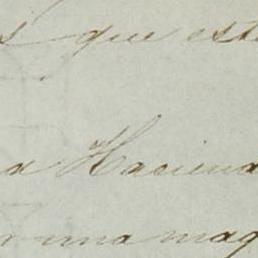 s que est
a Haciend
una maq